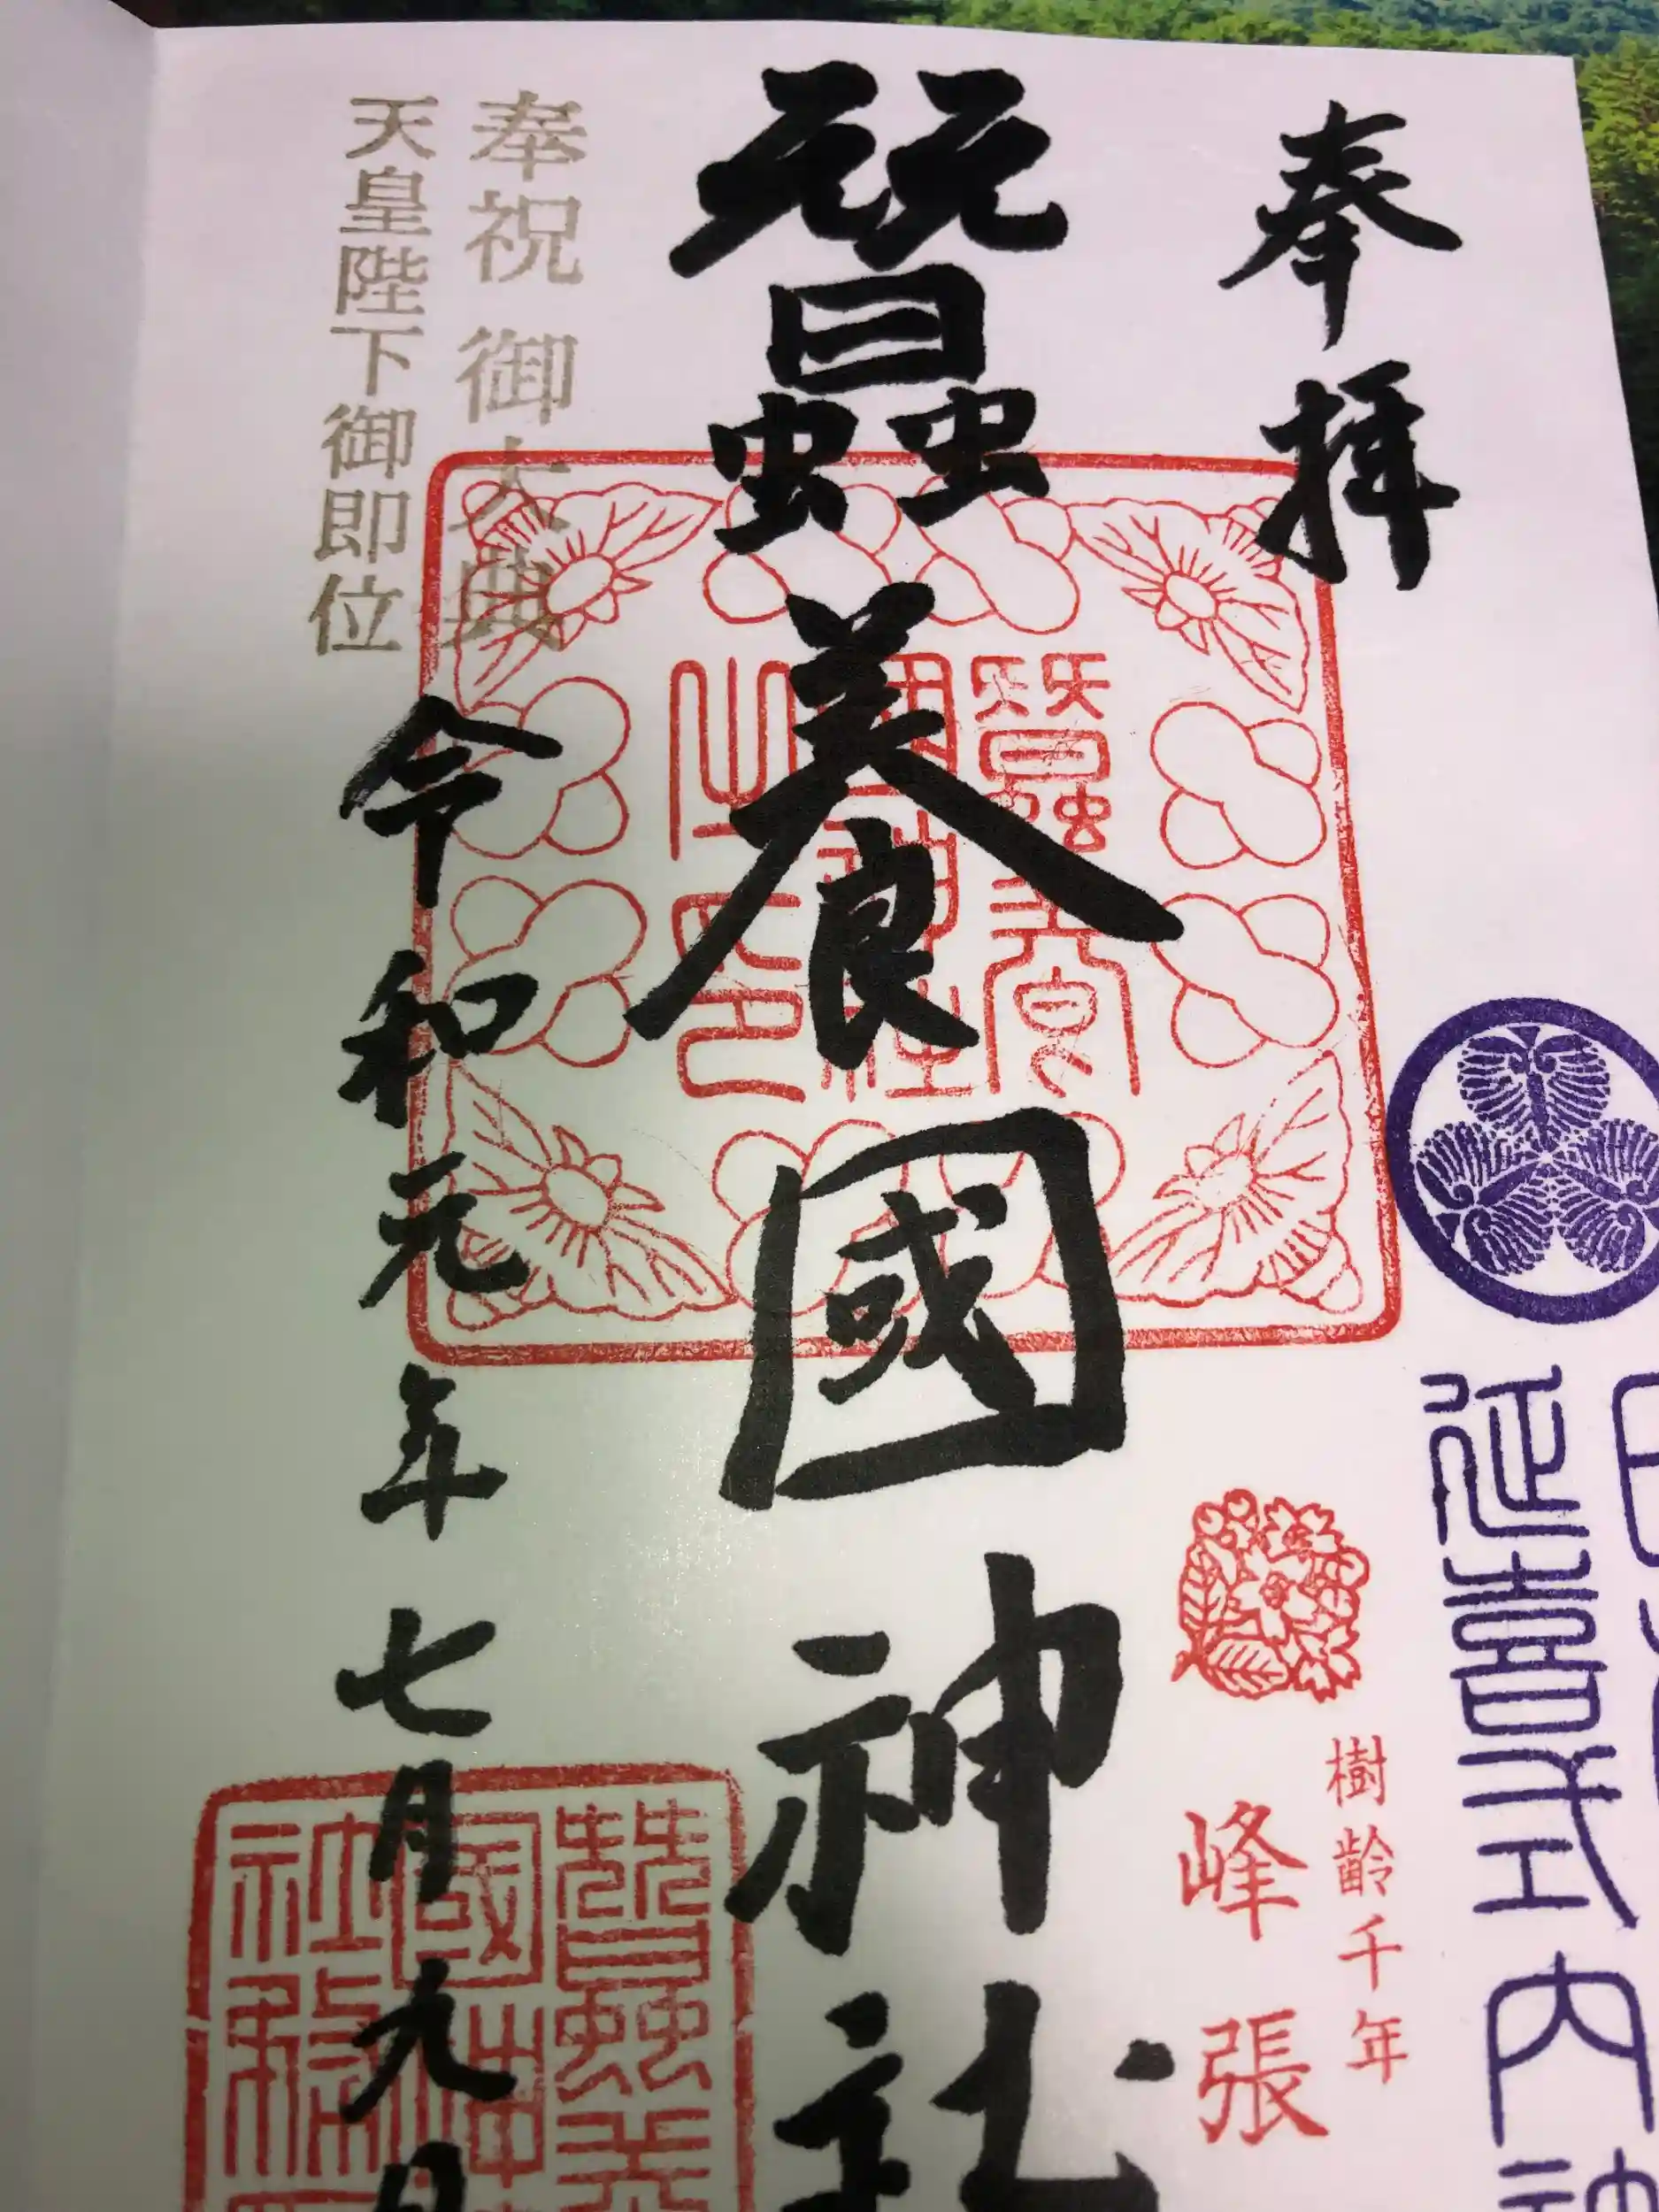 奉拝
延喜式内神
樹齢千年
峰張
蠶養國神社
奉祝 御大典
天皇陛下御即位
令和元年七月九日
蠶養國神社之印